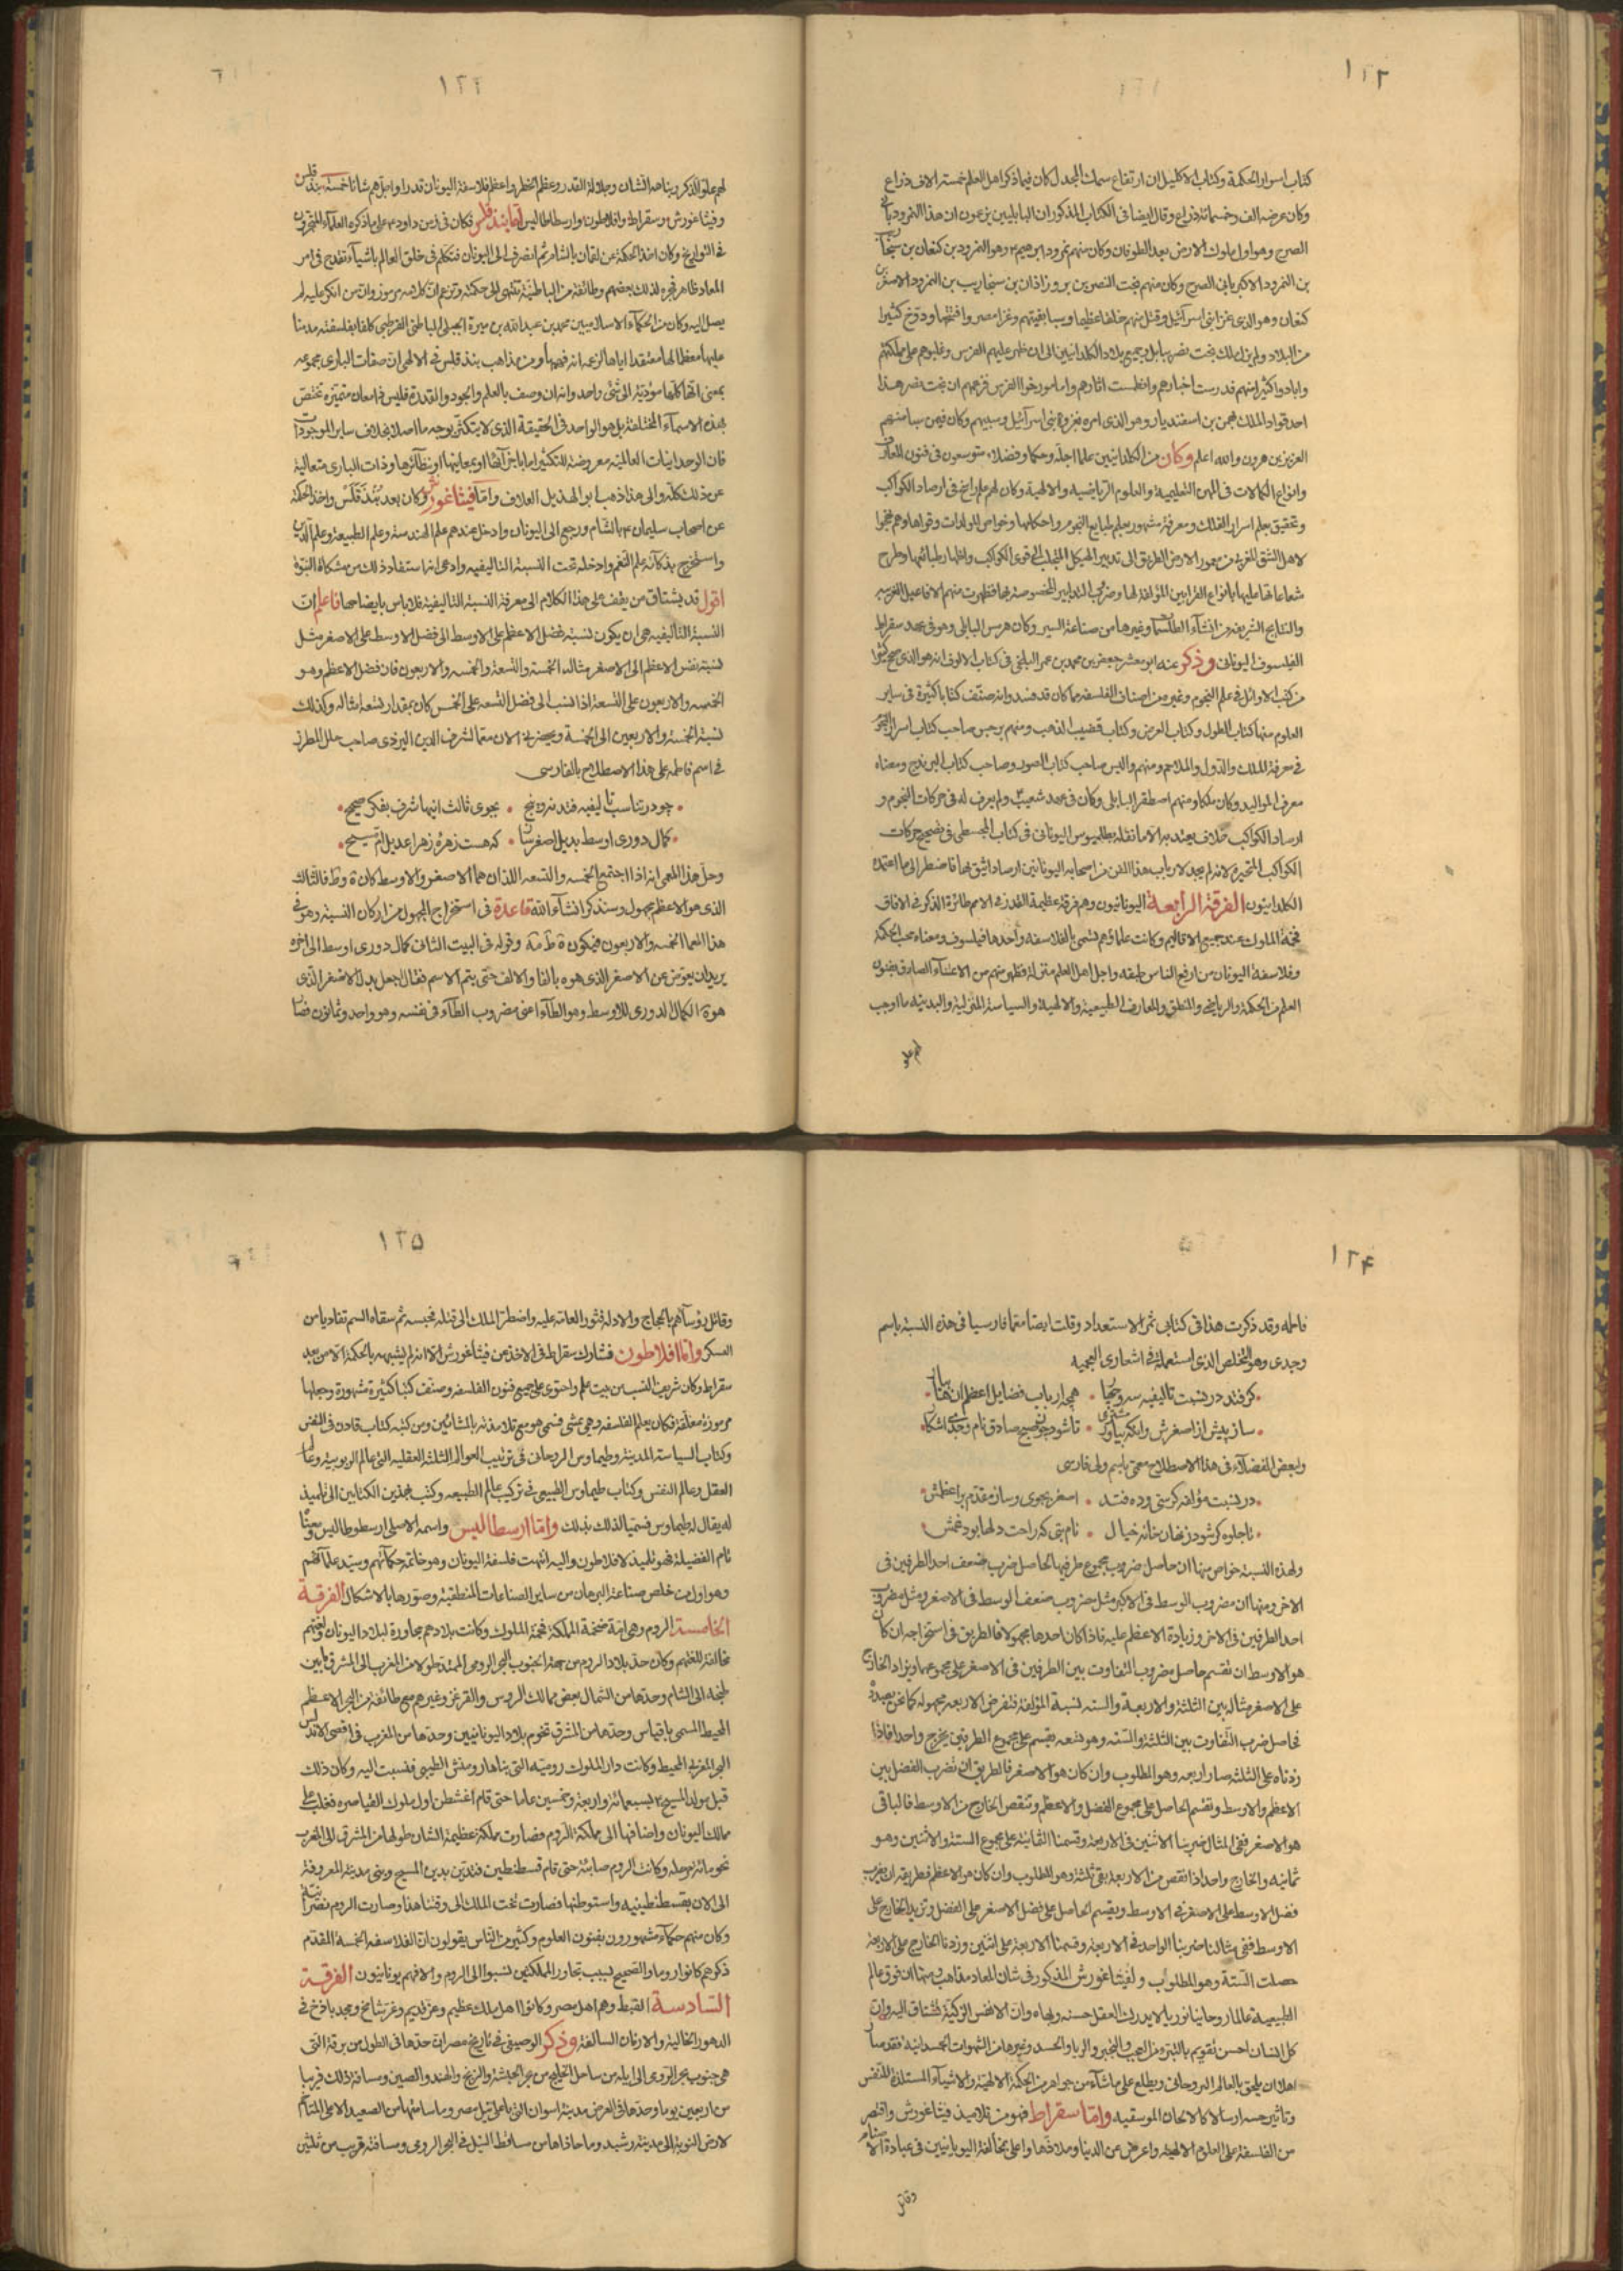 ١٢٢
كتاب اسرار الحكمة وكتاب الاكليل ان ارتفاع سمك المجدل كان فيما ذكر اهل العلم خمسة الاف ذراع
وكان عرضه الف وخمسمائة ذراع وقال ايضا فى الكتاب المذكور ان البابليين يزعمون ان هذا النمرود بانى
الصرح وهو اول ملوك الارض بعد الطوفان وكان منهم نمرود ابرهيم وهو النمرود بن كنعان بن سنجاريب
بن النمرود الاكبر بانى الصرح وكان منهم بخت النصر بن بن سنجاريب بن النمرود الاصغر بن
كنعان وهو الذى غزا بنى اسرآئيل وقتل منهم خلقا عظيما وسبا بقيتهم وغزا مصر وافتتحها ودوّخ كثيرا
من البلاد ولم يزل ملك بخت نصر ببابل وجميع بلاد الكلدانيين الى ان ظهر عليهم الفرس وغلبوهم على مملكتهم
وابادوا كثيرا منهم فدرست اخبارهم وانطمست اثارهم واما مورخوا الفرس فزعمهم ان بخت نصر هذا
احد قواد الملك بهمن بن اسفنديار وهو الذى امره بغزوة بنى اسرآئيل وسبيهم وكان فيمن سبا منهم
العزيز بن هرون والله اعلم وكان من الكلدانيين علما اجلّة وحكما وفضلاء متوسعون فى فنون المعارف
وانواع الكمالات فى المهن التعليمية والعلوم الرياضيه والالهية وكان لهم علم راسخ فى ارصاد الكواكب
وتحقيق بعلم اسرار الفلك ومعرفة مشهورة بعلم طبايع النجوم واحكامها وخواص المولدات وقواها وهم نهجوا
لاهل الشق الغربى من معمور الارض الطريق الى تدبير الهيكل لقوى الكواكب واظهار طبائعها وطرح
شعاعاتها عليها بانواع القرابين المؤلفة لها وضروب التدابير المخصوصة بها فظهرت منهم الافاعيل الغريبه
والنتايج الشريفه من انشآء الطلسما وغيرها من صناعة السير وكان هرمس البابلى وهو فى عهد سقراط
الفيلسوف اليونانى وذكر عنه ابو معشر جعفر بن محمد بن عمر البلخى فى كتاب الالوف انه هو الذى صحح كثيرا
من كتب الاوائل فى علم النجوم وغيره من اصناف الفلسفه مما كان قد فسد وانه صنّف كتبا كثيرة فى ساير
العلوم منها كتاب الطول وكتاب العرض وكتاب قضيب الذهب ومنهم برجس صاحب كتاب اسرار النجوم
فى معرفة الملك والدول والملاحم ومنهم واليس صاحب كتاب الصور وصاحب كتاب البزيدج ومعناه
معرف المواليد وكان ملكا ومنهم اصطفر البابلى وكان فى عهد شعيب ولم يعرف له فى حركات النجوم و
ارصاد الكواكب خلاف يعتد به الا ما نقله بطليموس اليونانى فى كتاب المجسطى فى تصحيح حركات
الكواكب المتحيرة لانه لم يجد لارباب هذا الفن من اصحابه اليونانيين ارصادا يثق بها فاضطر الى ما اعتمده
الكلدانيون الفرقة الرابعة اليونانيون وهم فرقة عظيمة القدر فى الامم طائرة الذكر فى الافاق
فخمة الملوك عند جميع الاقاليم وكانت علماؤهم تسمى بالفلاسفه واحدها فيلسوف ومعناه محب الحكمه
وفلاسفة اليونان من ارفع الناس طبقه واجل اهل العلم منزلة لما ظهر منهم من الاعتنآء الصادق بفنون
العلم من الحكمة والرياضى والمنطق والمعارف الطبيعية والالهية والسياسة المنزلية والمدينيه ما اوجب
لهم علو
١٢٣
لهم علو الذكر ونباهة الشان وجلالة القدر وعظم الخطر واعظم فلاسفة اليونان قدرا واجلّهم شانا خمسة بندقلس
وفيثاغورش وسقراط وافلاطون وارسطاطاليس اما بندقلس فكان فى زمن داود على ما ذكره العلمآء المتبحرون
فى التواريخ وكان اخذ الحكمة عن لقمان بالشام ثم انصرف الى اليونان فتكلم فى خلق العالم باشيآء تقدح فى امر
المعاد ظاهر فهجره لذلك بعضهم وطائفة من الباطنيّة تنتهى الى حكمته وتزعم انّ كلامه مرموز وان من انكر عليه لم
يصل اليه وكان من الحكمآء الاسلاميين محمد بن عبدالله بن ميرة الجبلى الباطنى القرطبى كلفا بفلسفته مدمنا
عليها معظما لها معتقدا اياها لزعمه انه فهمها ومن مذاهب بندقلس فى الالهى ان صفات البارى مجموعه
بمعنى انها كلها مؤدّية الى شئ واحد وانه ان وصف بالعلم والجود والقدرة فليس ذا معان متميّزة تختص
بهذه الاسمآء المختلفة بل هو الواحد فى الحقيقة الذى لا يتكثّر بوجه ما اصلا بخلاف ساير الموجودات
فان الوحدانيات العالميّة معروضة للتكثير اما باجزآئها او بمعانيها او بنظآئرها وذات البارى متعالية
عن ذلك كله والى هذا ذهب ابو الهذيل العلاف وامّا فيثاغورش فكان بعد بندقلس واخذ الحكمة
عن اصحاب سليمان بالشام ورجع الى اليونان وادخل عندهم علم الهندسة وعلم الطبيعة وعلم الدين
واستخرج بذكآئه علم النغم وادخله تحت النسبة التاليفيه وادعى انه استفاد ذلك من مشكاة النبوة
اقول قد يشتاق من يقف على هذا الكلام الى معرفة النسبة التاليفية فلا باس بايضاحها فاعلم ان
النسبة التاليفيه هى ان يكون نسبة فضل الاعظم على الاوسط الى فضل الاوسط على الاصغر مثل
نسبة نفس الاعظم الى الاصغر مثاله الخمسة والتسعة والخمسة والاربعون فان فضل الاعظم وهو
الخمسه والاربعون على التسعة اذا نسب الى فضل التسعه على الخمس كان بمقدار تسعة امثاله وكذلك
نسبة الخمسة والاربعين الى الخمسة ويحضرنى الان معمّا لشرف الدين اليزدى صاحب حلل المطرز
فى اسم فاطمه على هذا الاصطلاح بالفارسى
چو در تناسب تاليفيه فتد نه و پنج • بجوى ثالث اينها شرف بفكر صحيح
كمال دورى اوسط بديل اصغر ساز • كه هست زهره زهرا عديل ام مسيح
وحل هذا المعمى انه اذا اجتمع الخمسه والتسعه اللذان هما الاصغر والاوسط كان ة وط فالثالث
الذى هو الاعظم مجهول وسنذكر انشآء الله قاعدة فى استخراج المجهول من اركان النسبة وهو فى
هذا المعما الخمسه والاربعون فيكون ة ط مة وقوله فى البيت الثانى كمال دورى اوسط الى اخره
يريد ان يعوّض عن الاصغر الذى هو ه بالفا والالف حتى يتم الاسم فقال اجعل بدل الاصغر الذى
هو ة الكمال الدورى للاوسط وهو الطآء اعنى مضروب الطآء فى نفسه وهو واحد وثمانون فصار
١٢٤
فاطمه وقد ذكرت هذا فى كتابى ثمر الاستعداد وقلت ايضا معمّا فارسيا فى هذه النسبة باسم
وجدى وهو التخلص الذى استعملته فى اشعارى العجميه
كرفتند در نسبت تاليفيه سه و پنج را • هم ارباب فضايل اعظم ان
ساز پيش از اصغرش وانكه بياور • تا شود چون صبح صادق نام وجدى اشكار
ولبعض الفضلآء فى هذا الاصطلاح معمّى باسم ولى فارسى
در نسبت مؤلفه كرسى وده فتد • اصغر بجوى وساز مقدّم بر اعظمش
تا جلوه كر شود ز نهان خانه خيال • نام بتى كه راحت دلها بود غمش
ولهذه النسبة خواص منها ان حاصل ضرب مجموع طرفيها الحاصل ضرب ضعف احد الطرفين فى
الاخر ومنها ان مضروب الوسط فى الاكبر مثل مضروب ضعف الوسط فى الاصغر ومثل مضروب
احد الطرفين فى الاخر وزيادة الاعظم عليه فاذا كان احدها مجهولا فالطريق فى استخراجه ان كان
هو الاوسط ان تقسم حاصل مضروب التفاوت بين الطرفين فى الاصغر على مجموعهما ويزاد الخارج
على الاصغر مثاله بين الثلثة والاربعة والسته نسبة المؤلفة فنفرض الاربعه مجهوله كما نحن بصدده
فحاصل ضرب التفاوت بين الثلثة والستّه وهو تسعه يقسم على مجموع الطرفين يخرج واحدا فاذا
زدناه على الثلثه صار اربعه وهو المطلوب وان كان هو الاصغر فالطريق ان تضرب الفضل بين
الاعظم والاوسط وتقسم الحاصل على مجموع الفضل والاعظم وتنقص الخارج من الاوسط فالباقى
هو الاصغر ففى المثال ضربنا الاثنين فى الاربعة وقسمنا الثمانية على مجموع الستة والاثنين وهو
ثمانيه والخارج واحد اذا نقص من الاربعة بقى ثلثة وهو المطلوب وان كان هو الاعظم فطريقه ان يضرب
فضل الاوسط على الاصغر فى الاوسط ويقسم الحاصل على فضل الاصغر على الفضل وتزيد الخارج على
الاوسط ففى مثالنا ضربنا الواحد فى الاربعة وقسمنا الاربعة على اثنين وزدنا الخارج على الاربعة
حصلت الستّة وهو المطلوب ولفيثاغورش المذكور فى شان المعاد مذاهب منها ان فوق عالم
الطبيعية عالما روحانيا نورانيا لا يدرك العقل حسنه وبهاه وان الانفس الزكيّة تشتاق اليه وان
كل انسان احسن تقويم بالتبرّء من العجب والتجبر والريا والحسد وغيرها من الشهوات الجسدانية فقد صار
اهلا ان يلحق بالعالم الروحانى ويطلع على ما شآء من جواهر من الحكمة الالهيّة والاشيآء المستلذة للنفس
وتاتيه حسه ارسالا كالالحان الموسقيه وامّا سقراط فهو من تلاميذ فيثاغورش واقتصر
من الفلسفة على العلوم الالهيّه واعرض عن الدنيا وملاذّها واعلن بمخالفة اليونانيين فى عبادة الاصنام
وقاتل
١٢٥
وقاتل رؤسآهم بالحجاج والادلة فثور العامة عليه واضطر الملك الى قتله فحبسه ثم سقاه السم تفاديا من
العسكر وامّا افلاطون فشارك سقراط فى الاخذ عن فيثاغورش الا انه لم يشهر بالحكمة الا من بعد
سقراط وكان شريف النسب من بيت علم واحتوى على جميع فنون الفلسفه وصنّف كتبا كثيرة مشهورة وجعلها
مرموزة مغلّقة وكان يعلم الفلسفه وهو يمشى فسمى هو مع تلامذته بالمشائين ومن كتبه كتاب فادن فى النفس
وكتاب السياسة المدينة وطيماوس الروحانى فى ترتيب العوالم الثلثة العقليه التى عالم الربوبية وعالم
العقل وعالم النفس وكتاب طيماوس الطبيعى فى تركيب عالم الطبيعه وكتب بهذين الكتابين الى تلميذ
له يقال له طيماوس فسمّيا لذلك بذلك وامّا ارسطاليس واسمه الاصلى ارسطوطاليس ومعناه
تام الفضيلة فهو تلميذ لافلاطون واليه انتهت فلسفة اليونان وهو خاتمة حكمآئهم وسيّد علمآئهم
وهو اول من خلص صناعة البرهان من ساير الصناعات المنطقية وصوّرها بالاشكال الفرقة
الخامسة الروم وهى امّة ضخمة المملكة فخمة الملوك وكانت بلادهم مجاورة لبلاد اليونان ولغتهم
مخالفة للغتهم وكان حدّ بلاد الروم من جهة الجنوب البحر الرومى الممتد طولا من المغرب الى المشرق ما بين
طنجه الى الشام وحدّها من الشمال بعض ممالك الروس والفرغز وغيرهم مع طائفة من البحر الاعظم
المحيط المسمى باقيانس وحدّها من المشرق تخوم بلاد اليونانيين وحدّها من المغرب فى اقصى الاندلس
البحر الغربى المحيط وكانت دار الملوك روميّة التى بناها رومنش الطيبى فنسبت اليه وكان ذلك
قبل مولد المسيح بسبعمائة واربعة وخمسين عاما حتى قام اغشطش اول ملوك القياصره فغلب على
ممالك اليونان واضافها الى مملكة الروم فصارت مملكة عظيمة الشان طولها من المشرق الى المغرب
نحو مائة مرحلة وكانت الروم صابئة حتى قام قسطنطين فتدين بدين المسيح وبنى مدينة المعروفة
الى الان بقسطنطينيه واستوطنها فصارت تخت الملك الى وقتنا هذا وصارت الروم نصرانية
وكان منهم حكمآء مشهورون بفنون العلوم وكثير من الناس يقولون ان الفلاسفة الخمسة المقدّم
ذكرهم كانوا روما والصحيح بسبب تجاور المملكتين نسبوا الى الروم والا فهم يونانيون الفرقة
السّادسة القبط وهم اهل مصر وكانوا اهل ملك عظيم وعز قديم وعزّ شامخ ومجد باذخ فى
الدهور الخالية والازمان السالفة وذكر الوصيفى فى تاريخ مصر ان حدّها فى الطول من برقة التى
هى جنوب بحر الرومى الى ايله من ساحل الخليج من بحر الحبشة والزنج والهند والصين ومسافة ذلك قريبا
من اربعين يوما وحدّها فى العرض مدينة اسوان التى باعلى نيل مصر وما سامتها من الصعيد الاعلى المتاخم
لارض النوبة الى مدينة رشيد وما حاذاها من مساقط النيل فى البحر الرومى ومسافته قريب من ثلثين